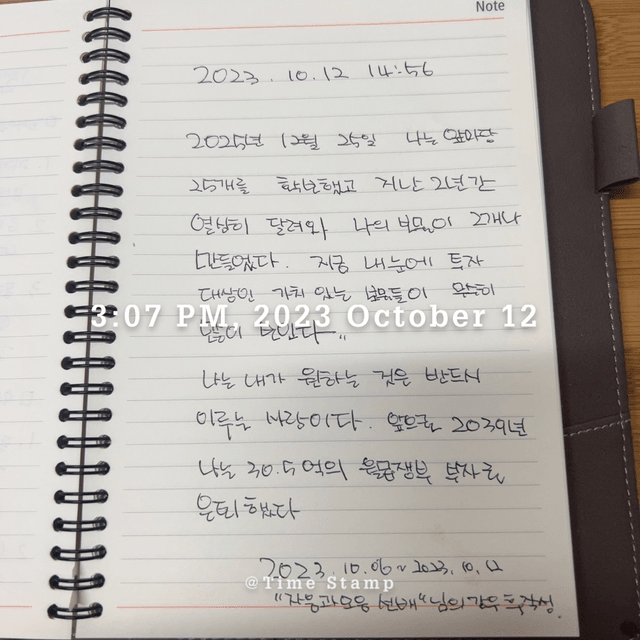 Note
2023.10.12 14:56
2025년 12월 25일 나는 앞마당
25개를 확보했고 지난 2년간
열심히 달려와 나의 보물이 2개나
만들었다. 지금 내눈에 투자
대상인 가치 있는 보물들이 무수히
3:07 PM, 2023 October 12
많이 보인다..
나는 내가 원하는 것은 반드시
이루는 사람이다. 앞으로 2039년
나는 30.5억의 월급쟁부 부자로
은퇴했다
2023.10.06~2023.10.12
@Time Stamp
"자음과모음 선배"님의